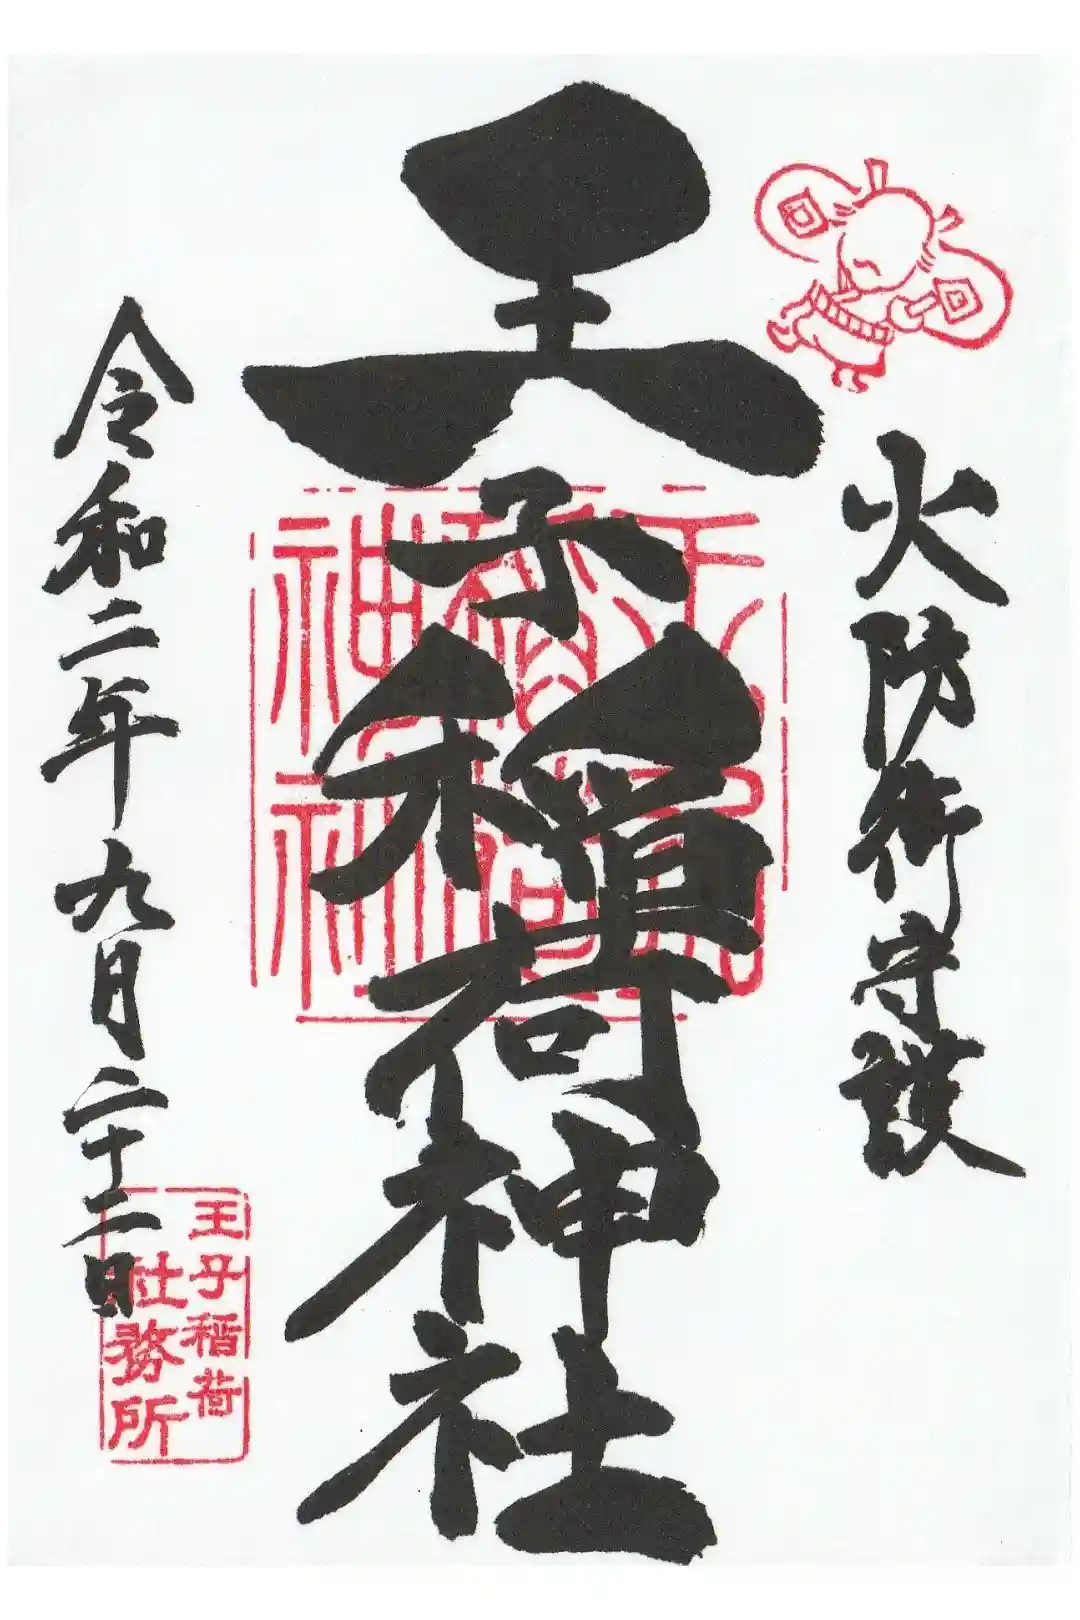 火防御守護
王子稲荷神社
令和二年九月二十二日
王子稲荷
社務所